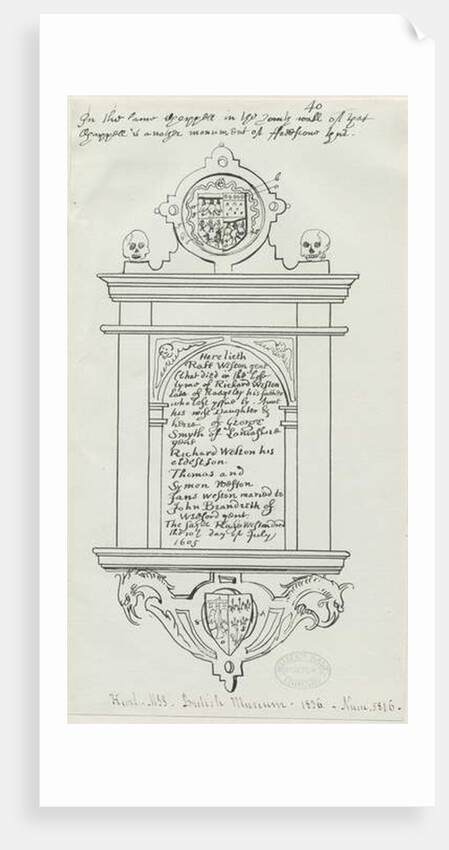 40
In the same Chappell in the South wall of that
Chappell is another monument of
Here lieth
Raff Weston gent
that died in the lyfe
tyme of Richard Weston
late of Rodgeley his father
who left yssue by Anne
his wife Daughter &
heire of George
Smyth of Lancashire
gent
Richard Weston his
eldest son
Thomas and
Symon Weston
Jane Weston maried to
John Brandreth of
gent.
The sayde Raff Weston died
the 10 day of July
1605
Harl. MSS. British Museum - 1836 - Num. 5816 -